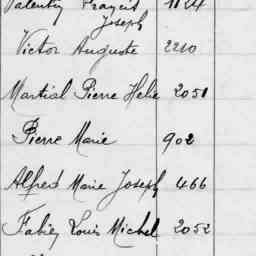 Valentin François 1124
Joseph
Victor Auguste 2210
Martial Pierre Helie 2051
Pierre Marie 902
Alfred Marie Joseph 466
Fabien Louis Michel 2052